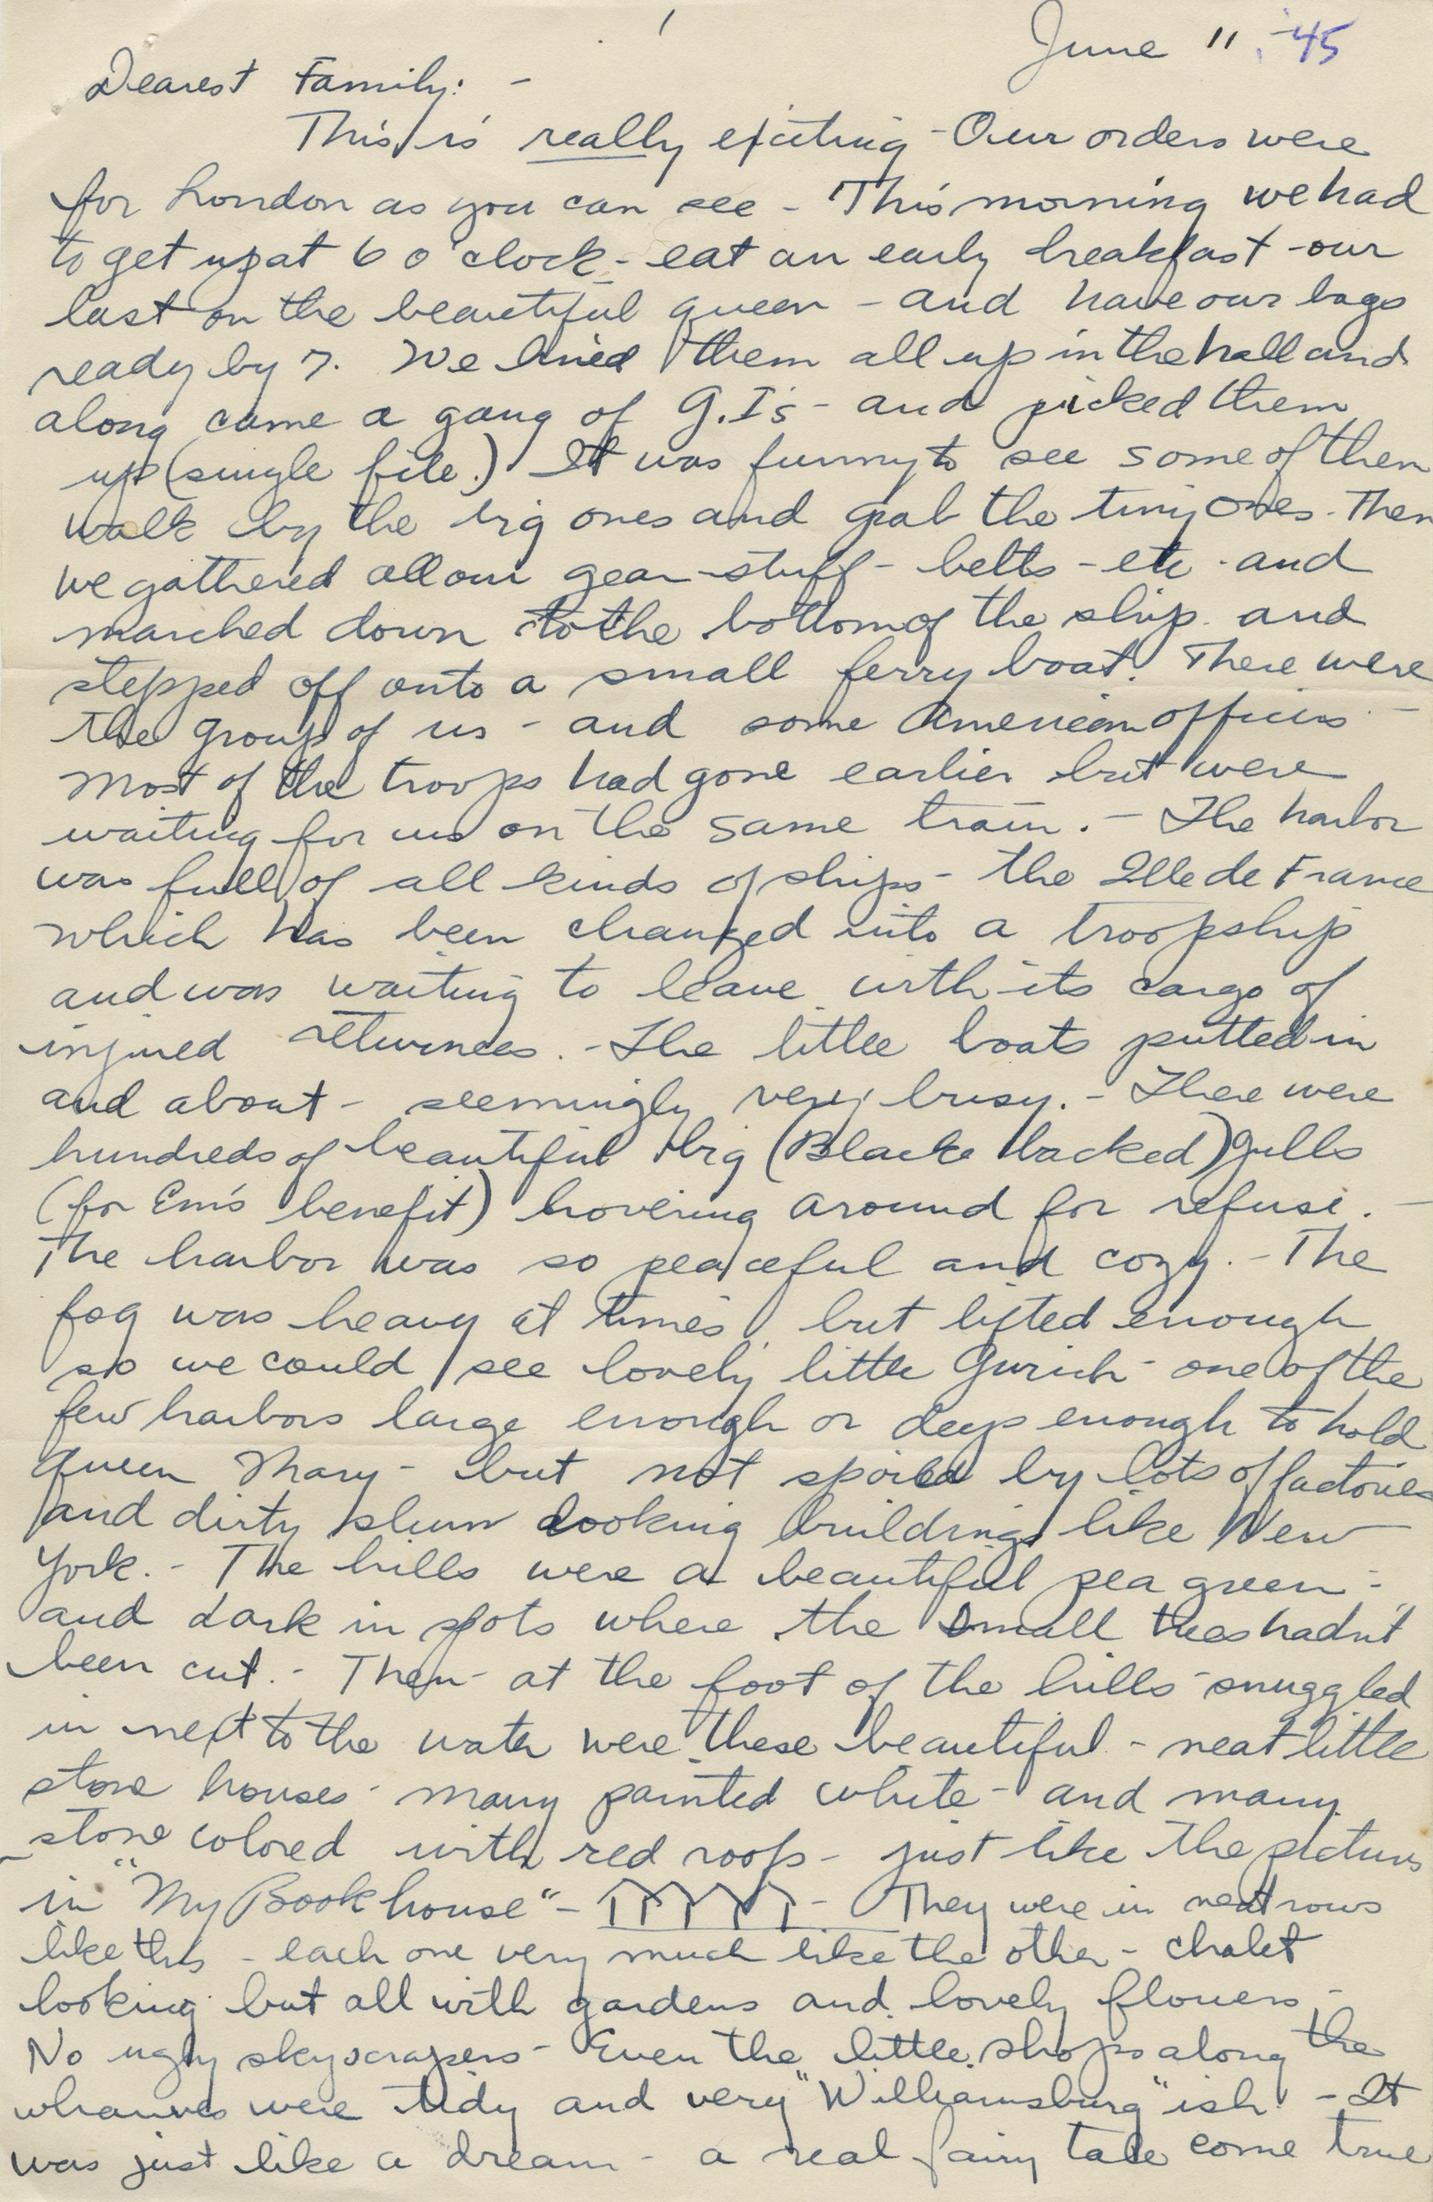 1
June 11, '45
Dearest Family: -
This is really exciting - Our orders were
for London as you can see - This morning we had
to get up at 6 o'clock - eat an early breakfast - our
last on the beautiful queen - and have our bags
ready by 7. We lined them all up in the hall and
along came a gang of G.I's - and picked them
up (single file.) It was funny to see some of them
walk by the big ones and grab the tiny ones. Then
we gathered all our gear - stuff - belts - etc - and
marched down to the bottom of the ship and
stepped off onto a small ferry boat. There were
the group of us - and some American officers -
Most of the troops had gone earlier but were
waiting for us on the same train. - The harbor
was full of all kinds of ships - the Ille de France
which has been changed into a troopship
and was waiting to leave with its cargo of
injured returnees. - The little boats putted in
and about - seemingly very busy. - There were
hundreds of beautiful big (Black backed) gulls
(for Em's benefit) hovering around for refuse. -
The harbor was so peaceful and cozy. - The
fog was heavy at times, but lifted enough
so we could see lovely little Gurich - one of the
few harbors large enough or deep enough to hold
Queen Mary - but not spoiled by lots of factories
and dirty slum looking buildings like New
York. - The hills were a beautiful pea green -
and dark in spots where the small trees hadn't
been cut. - Then - at the foot of the hills - snuggled
in next to the water were these beautiful - neat little
stone houses - many painted white - and many
stone colored with red roofs - just like the pictures
in "My Book house" - They were in neat rows
like this - each one very much like the other - chalet
looking but all with gardens and lovely flowers -
No ugly skyscrapers - Even the little shops along the
wharves were tidy and very "Williamsburg" ish. - It
was just like a dream - a real fairy tale come true